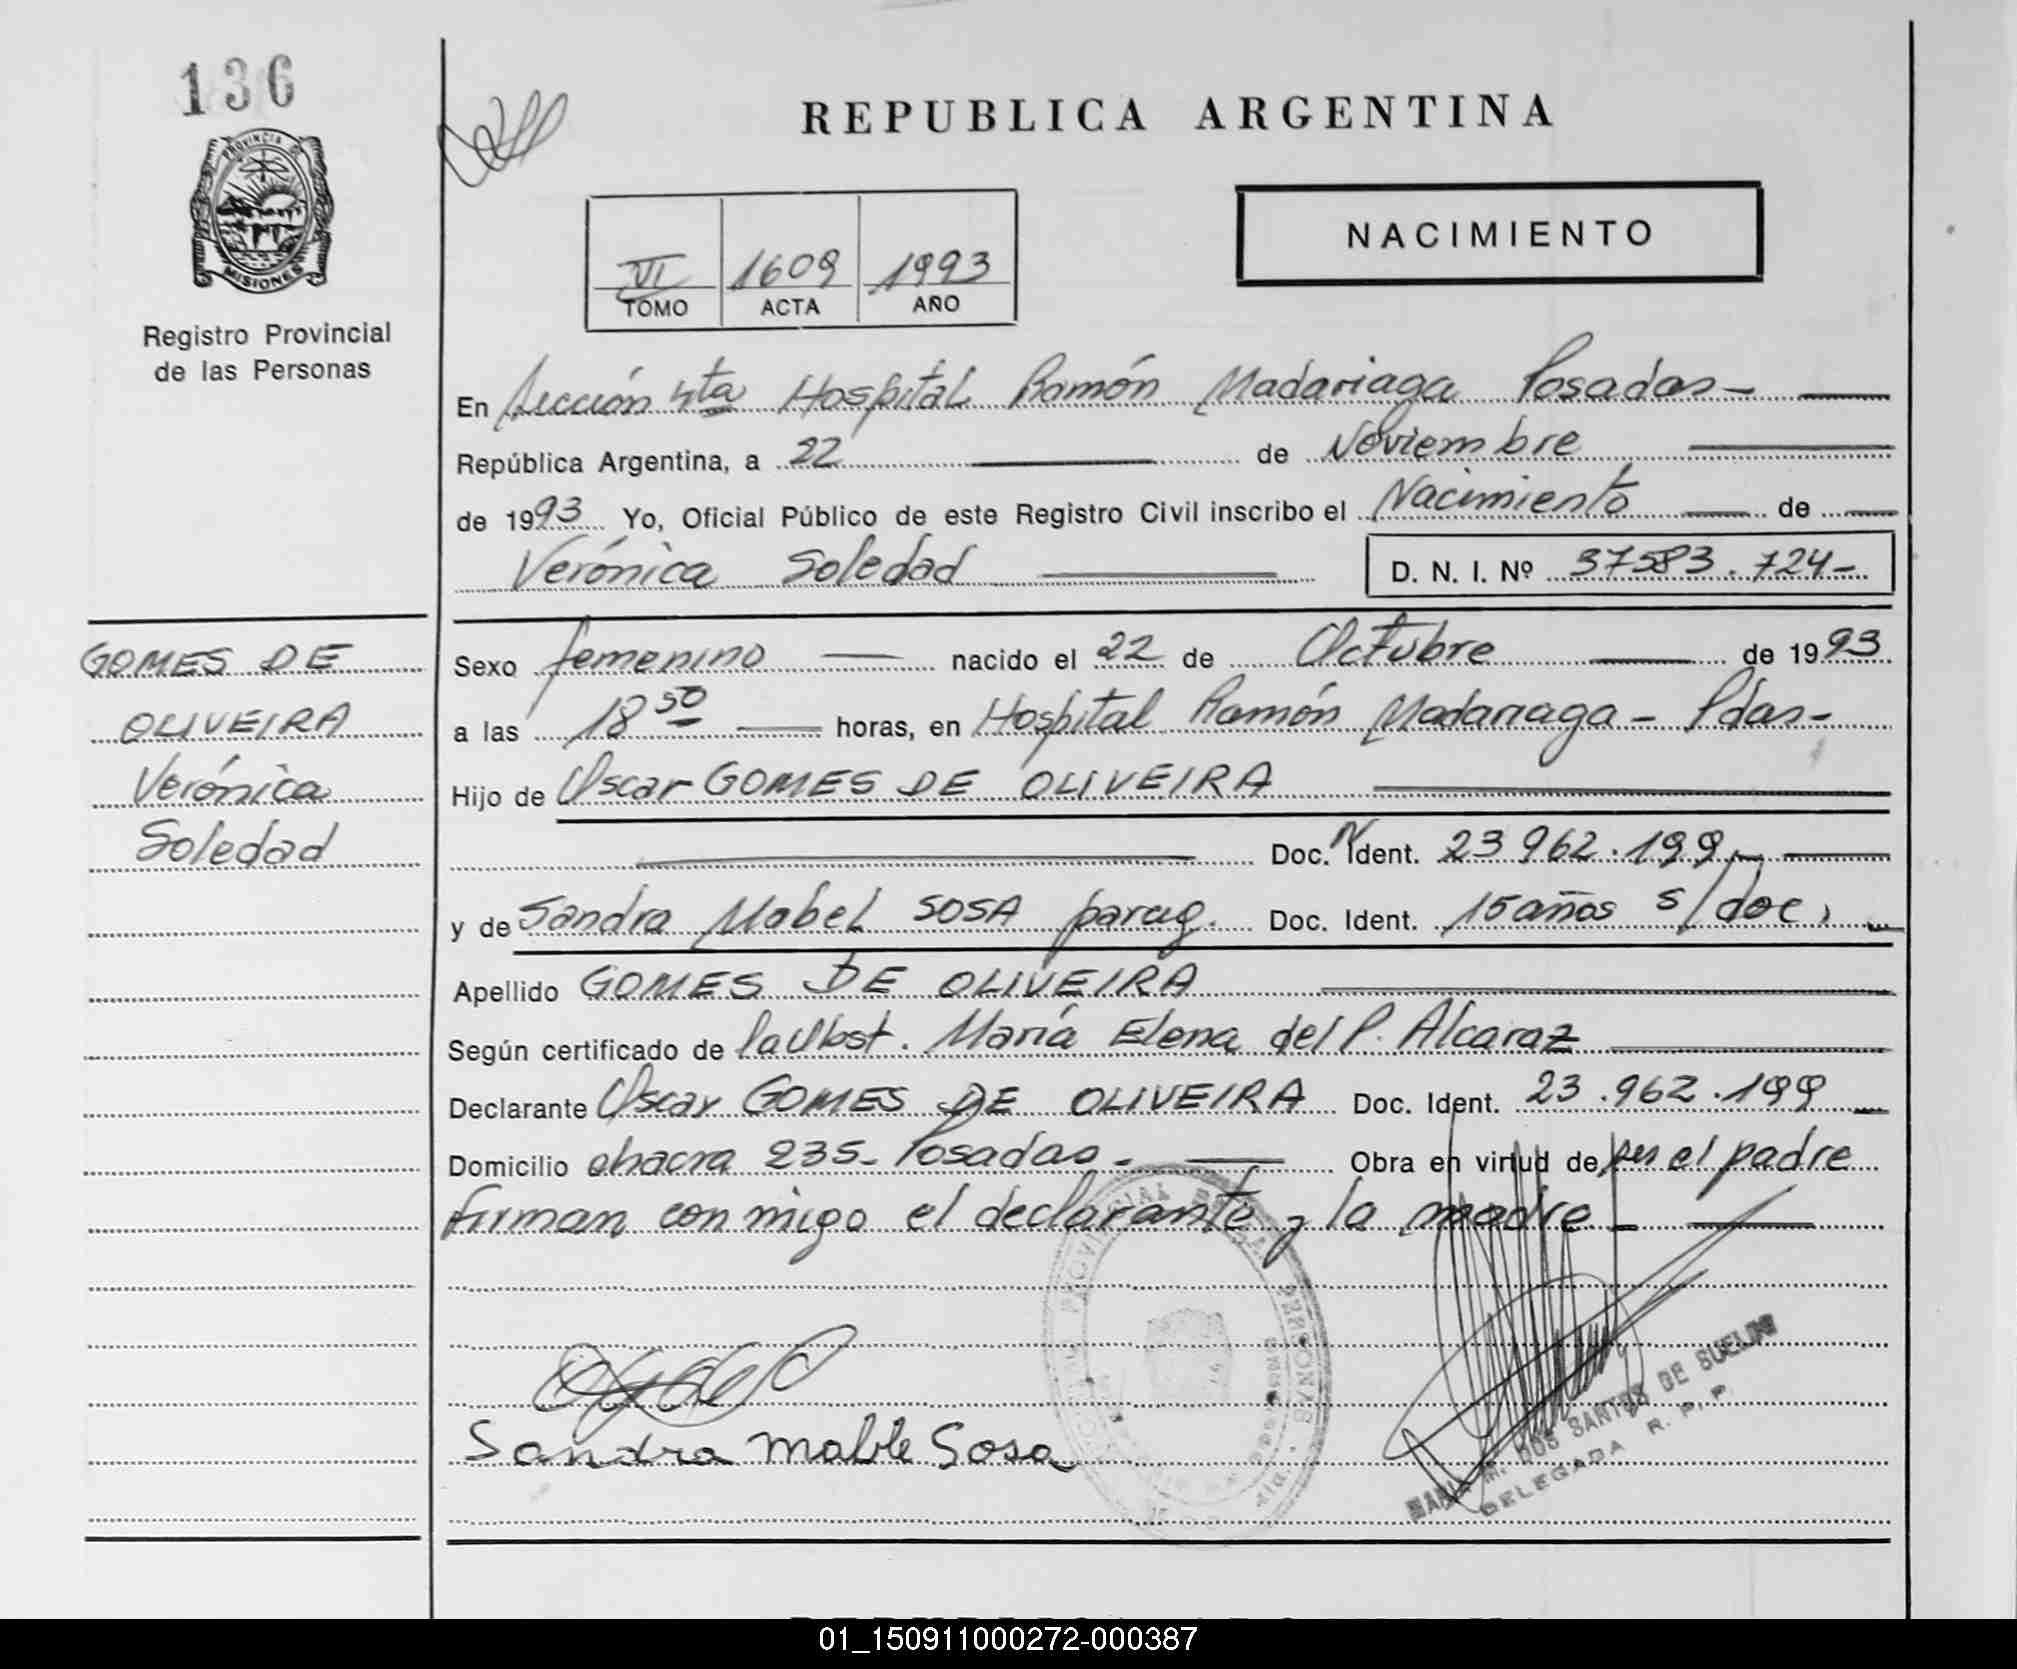 136
PROVINCIA DE
MISIONES
Registro Provincial
de las Personas
REPUBLICA ARGENTINA
NACIMIENTO
VI 1609 1993
TOMO ACTA AÑO
En Sección 4ta Hospital Ramón Madariaga Posadas -
República Argentina, a 22 de Noviembre
de 1993 Yo, Oficial Público de este Registro Civil inscribo el Nacimiento de
Verónica Soledad D. N. I. Nº 37583.724-
GOMES DE
OLIVEIRA
Verónica
Soledad
Sexo femenino nacido el 22 de Octubre de 1993
a las 18 50 horas, en Hospital Ramón Madariaga - Pdas-
Hijo de Oscar GOMES DE OLIVEIRA
Doc. Ident. 23 962.199
y de Sandra Mabel SOSA parag. Doc. Ident. 15 años s/doc.
Apellido GOMES DE OLIVEIRA
Según certificado de la Obst. María Elena del P. Alcaraz
Declarante Oscar GOMES DE OLIVEIRA Doc. Ident. 23.962.199
Domicilio chacra 235- Posadas - Obra en virtud de ser el padre
firman conmigo el declarante y la madre
Sandra mable Sosa
MARIA M. DOS SANTOS DE SUELINI
DELEGADA R. P. P.
01_150911000272-000387